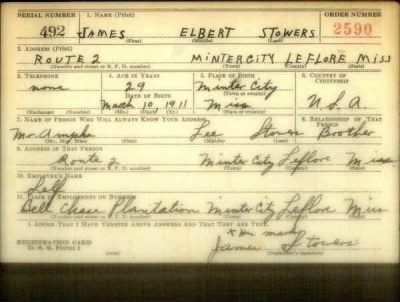 SERIAL NUMBER 1. NAME (Print) ORDER NUMBER
492 JAMES ELBERT STOWERS 2590
(First) (Middle) (Last)
2. ADDRESS (Print)
ROUTE 2 MINTERCITY LEFLORE MISS
(Number and street or R. F. D. number) (Town) (County) (State)
3. TELEPHONE 4. AGE IN YEARS 5. PLACE OF BIRTH 6. COUNTRY OF CITIZENSHIP
none 29 Minter City
DATE OF BIRTH (Town or county)
March 10 1911 Miss U.S.A.
7. NAME OF PERSON WHO WILL ALWAYS KNOW YOUR ADDRESS 8. RELATIONSHIP OF THAT PERSON
Mr. Lee Stowers Brother
(Mr., Mrs., Miss) (First) (Middle) (Last)
9. ADDRESS OF THAT PERSON
Route 2 Minter City Leflore Miss
(Number and street or R. F. D. number) (Town) (County) (State)
10. EMPLOYER'S NAME
Self
11. PLACE OF EMPLOYMENT OR BUSINESS
Bell Chase Plantation Minter City Leflore Miss
(Number and street or R. F. D. number) (Town) (County) (State)
I AFFIRM THAT I HAVE VERIFIED ABOVE ANSWERS AND THAT THEY ARE TRUE.
REGISTRATION CARD x His mark
D. S. S. Form 1 James Stowers